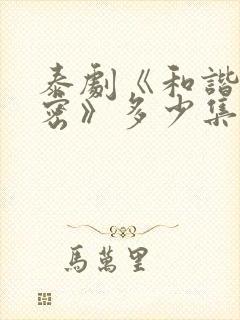 泰劇《和諧
密》多少集
馬萬里